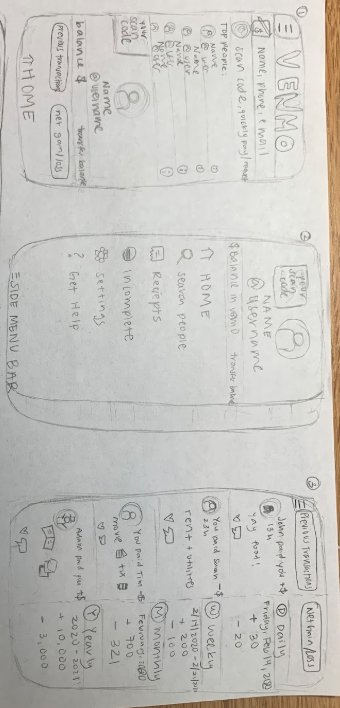 ①
VENMO
Name, phone, email
Scan code, quickly pay/request
TOP PEOPLE
Name
Name
Name
your
scan
code
Name
@username
balance $ transfer balance
previous transactions
net gain/loss
↑HOME
②
your
scan
code
NAME
@username
$ Balance in venmo transfer balance
HOME
Search people
Receipts
Incomplete
Settings
? Get Help
SIDE MENU BAR
③
PREVIOUS TRANSACTIONS
John paid you +$
13h
Yay food!
You paid Susan -$
23h
rent + utilities
You paid Tim -$
movie + tix
Adam paid you +$
Net Gain/Loss
Ⓓ Daily
+ 30
- 20
Ⓦ Weekly
+ 200
- 100
Ⓜ Monthly
+ 700
- 321
Ⓨ Yearly
2020 - 2021
+ 10,000
- 3,000